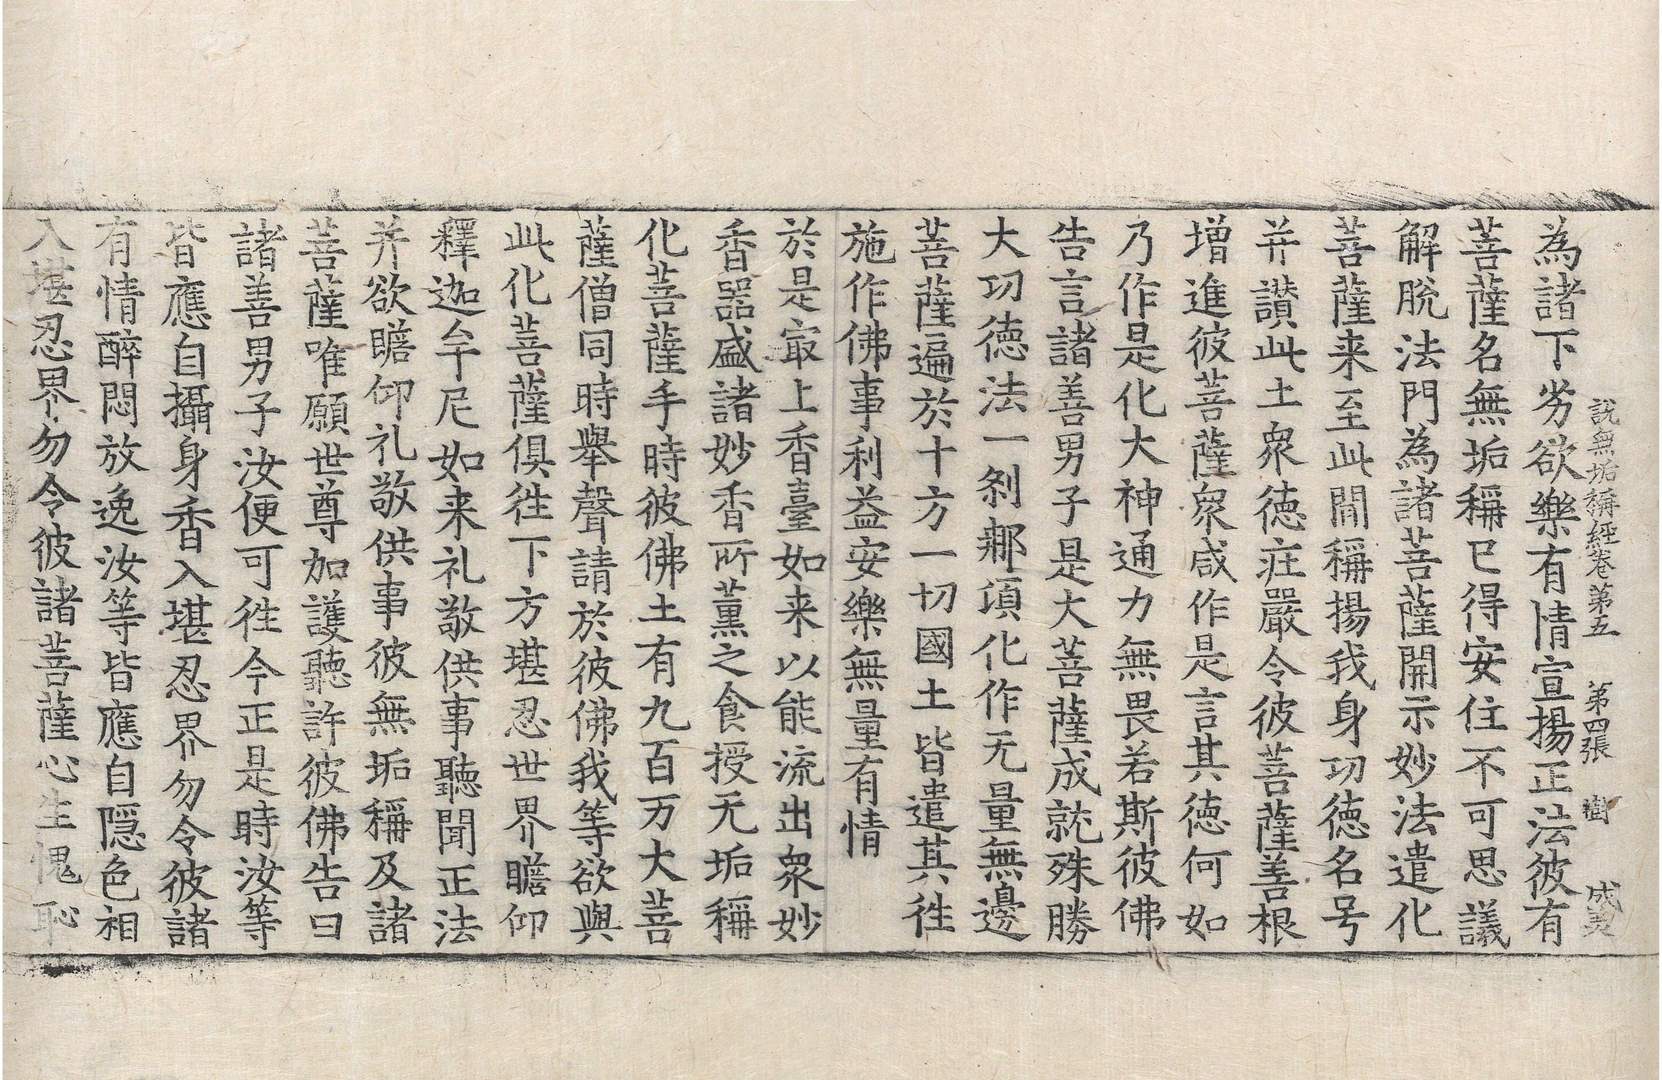 說無垢稱經卷第五 第四張 樹
為諸下劣欲樂有情宣揚正法彼有
菩薩名無垢稱已得安住不可思議
解脫法門為諸菩薩開示妙法遣化
菩薩来至此間稱揚我身功德名号
并讃此土衆德莊嚴令彼菩薩善根
增進彼菩薩衆咸作是言其德何如
乃作是化大神通力無畏若斯彼佛
告言諸善男子是大菩薩成就殊勝
大功德法一剎那頃化作无量無邊
菩薩遍於十方一切國土皆遣其徃
施作佛事利益安樂無量有情
於是㝡上香臺如来以能流出衆妙
香器盛諸妙香所薰之食授无垢稱
化菩薩手時彼佛土有九百万大菩
薩僧同時舉聲請於彼佛我等欲與
此化菩薩俱徃下方堪忍世界瞻仰
釋迦牟尼如来礼敬供事聽聞正法
并欲瞻仰礼敬供事彼無垢稱及諸
菩薩唯願世尊加護聽許彼佛告曰
諸善男子汝便可徃今正是時汝等
皆應自攝身香入堪忍界勿令彼諸
有情醉悶放逸汝等皆應自隱色相
入堪忍界勿令彼諸菩薩心生愧恥